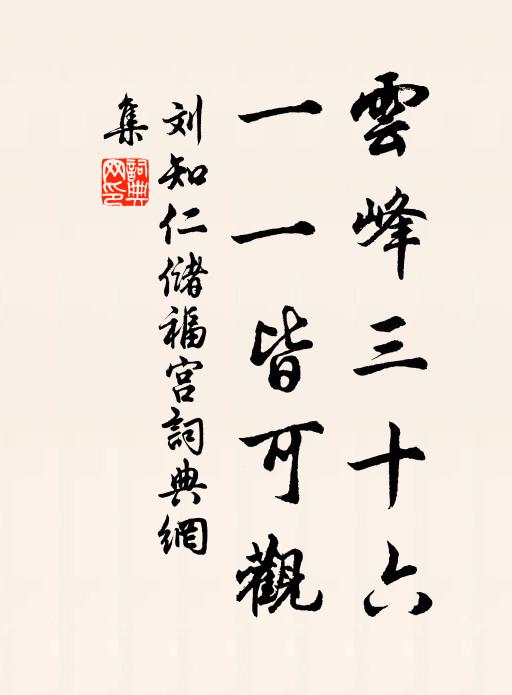 雲峰三十六
一一皆可觀
刘知仁儲福宫詞典網
集
詞典網印